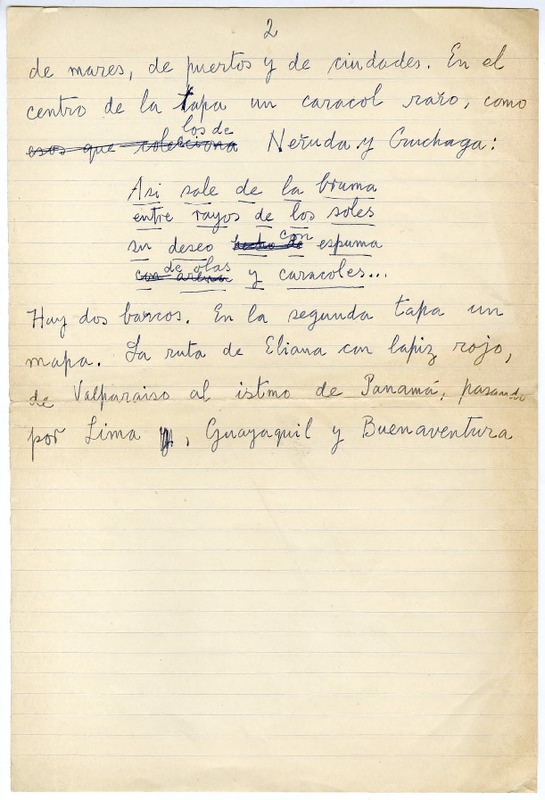 2
de mares, de puertos y de ciudades. En el
centro de la tapa un caracol raro, como
los de
esos que colecciona Neruda y Cruchaga:
Asi sale de la bruma
entre rayos de los soles
con
su deseo hecho de espuma
de olas
con arena y caracoles...
Hay dos barcos. En la segunda tapa un
mapa. La ruta de Eliana con lapiz rojo,
de Valparaiso al istmo de Panamá, pasando
por Lima y, Guayaquil y Buenaventura